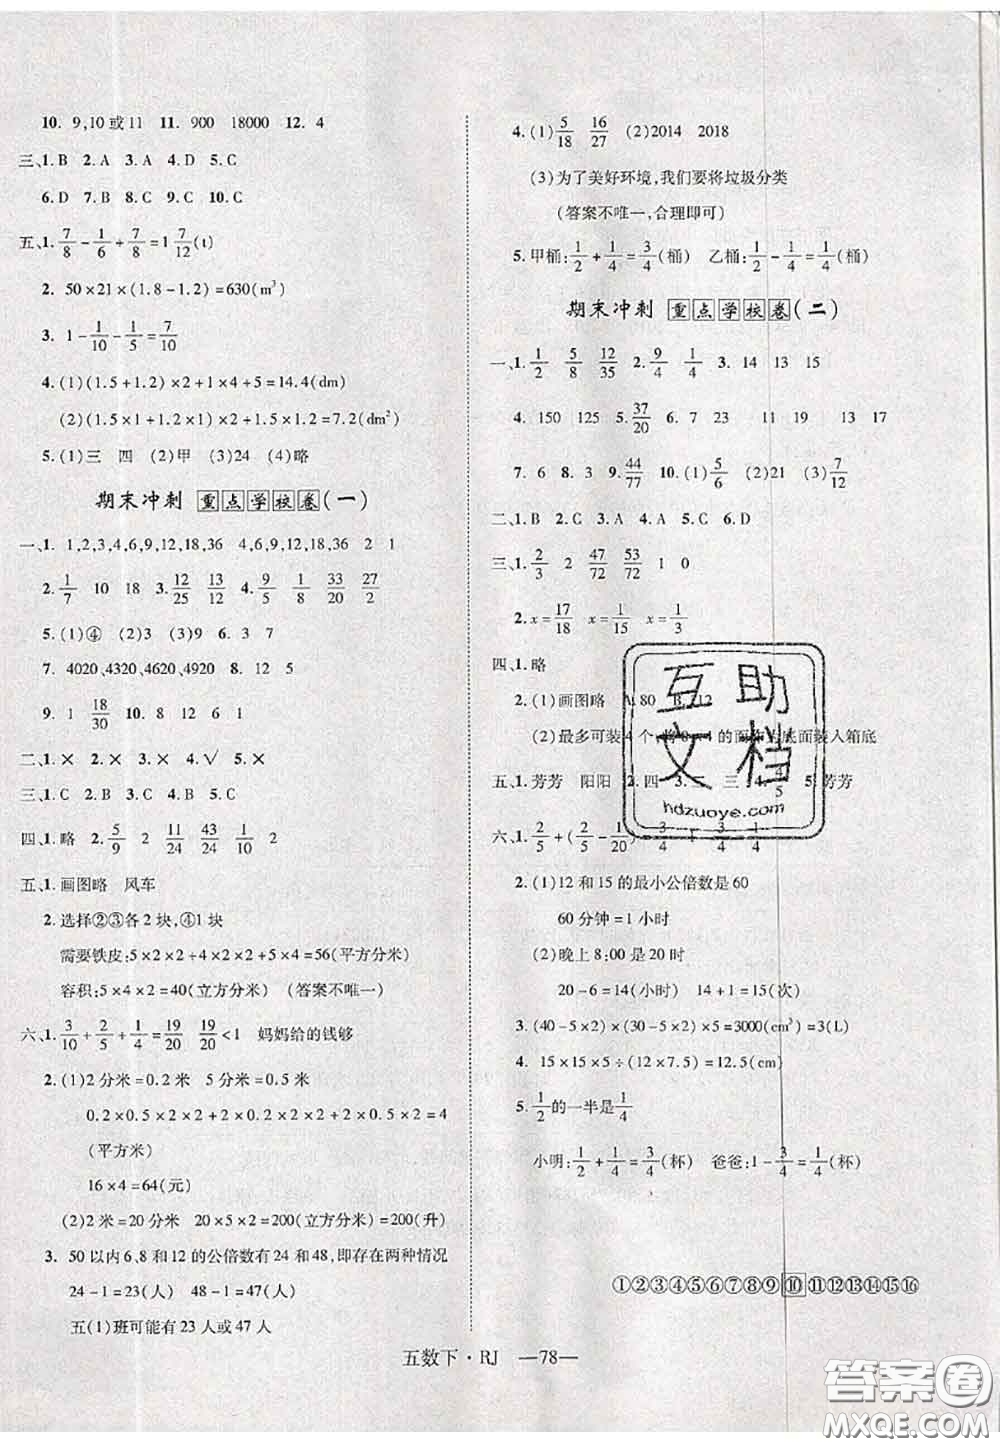 10. 9,10或11 11. 900 18000 12. 4
三、1. B 2. A 3. A 4. D 5. C
6. D 7. A 8. C 9. C 10. C
五、1. 7/8 - 1/6 + 7/8 = 1 7/12(t)
2. 50×21×(1.8-1.2)=630(m³)
3. 1 - 1/10 - 1/5 = 7/10
4. (1)(1.5+1.2)×2+1×4+5=14.4(dm)
(2)(1.5×1+1.2×1)×2+1.5×1.2=7.2(dm²)
5. (1)三 四 (2)甲 (3)24 (4)略
期末冲刺 重点学校卷(一)
一、1. 1,2,3,4,6,9,12,18,36 4,6,9,12,18,36 2 1
2. 1/7 10 18 3. 12/25 13/12 4. 9/5 1/8 33/20 27/2
5. (1)④ (2)② (3)⑨ 6. 3 7
7. 4020,4320,4620,4920 8. 12
9. 1 18/30 10. 8 12 6 1
二、1. × 2. × 3. × 4. √ 5. ×
三、1. C 2. A 3. A 4. C 5. B
四、1. 略 2. 5/9 2 11/24 43/24 1/10 2
五、1. 画图略 风车
2. 选择②③各2块,④1块
需要铁皮:5×2×2+4×2×2+5×4=56(平方分米)
容积:5×4×2=40(立方分米) (答案不唯一)
六、1. 3/10 + 2/5 + 1/4 = 19/20 19/20<1 妈妈给的钱够
2. (1)2分米=0.2米 5分米=0.5米
0.2×0.5×2×0.2+0.2×0.5×2×0.5×2=4
(平方米)
16×4=64(元)
(2)2米=20分米 20×5×2=200(立方分米)=200(升)
3. 50以内6、8和12的公倍数有24和48,即存在两种情况
24-1=23(人) 48-1=47(人)
五(1)班可能有23人或47人
4. (1)5/18 16/27 (2)2014 2018
(3)为了美好环境,我们要将垃圾分类
(答案不唯一,合理即可)
5. 甲桶:1/2 + 1/4 = 3/4(桶) 乙桶:1/2 - 1/4 = 1/4(桶)
期末冲刺 重点学校卷(二)
一、1. 1/2 5/8 12/35 2. 9/4 1/4 3. 14 13 15
4. 150 125 5. 37/20 6. 7 23 11 19 13 17
7. 12 10 8. 3 9. 44/77 10. (1)5/6 (2)21 (3)7/12
二、1. B 2. C 3. A 4. C 5. C 6. D
三、1. 2/3 2 47/72 53/72 1 0
2. x=17/18 x=1/15 x=1/3
四、1. 略
2. (1)画图略 A.80 B.12
(2)最多可装4个 的面 底面装入箱底
五、1. 芳芳 阳阳 2. 四 3. 二 三 4. 4/5 5. 芳芳
六、1. 2/5 + (2/5 - 1/20) = 3/4 3/4 1/4
2. (1)12和15的最小公倍数是60
60分钟=1小时
(2)晚上8:00是20时
20-6=14(小时) 14+1=15(次)
3. (40-5×2)×(30-5×2)×5=3000(cm³)=3(L)
4. 15×15×5÷(12×7.5)=12.5(cm)
5. 1/2的一半是1/4
小明:1/2 + 1/4 = 3/4(杯) 爸爸:1 - 3/4 = 1/4(杯)
互助
文档
hdzuoye.com
①②③④⑤⑥⑦⑧⑨⑩⑪⑫⑬⑭⑮⑯
五数下·RJ —78—
答案圈
MXQE.COM